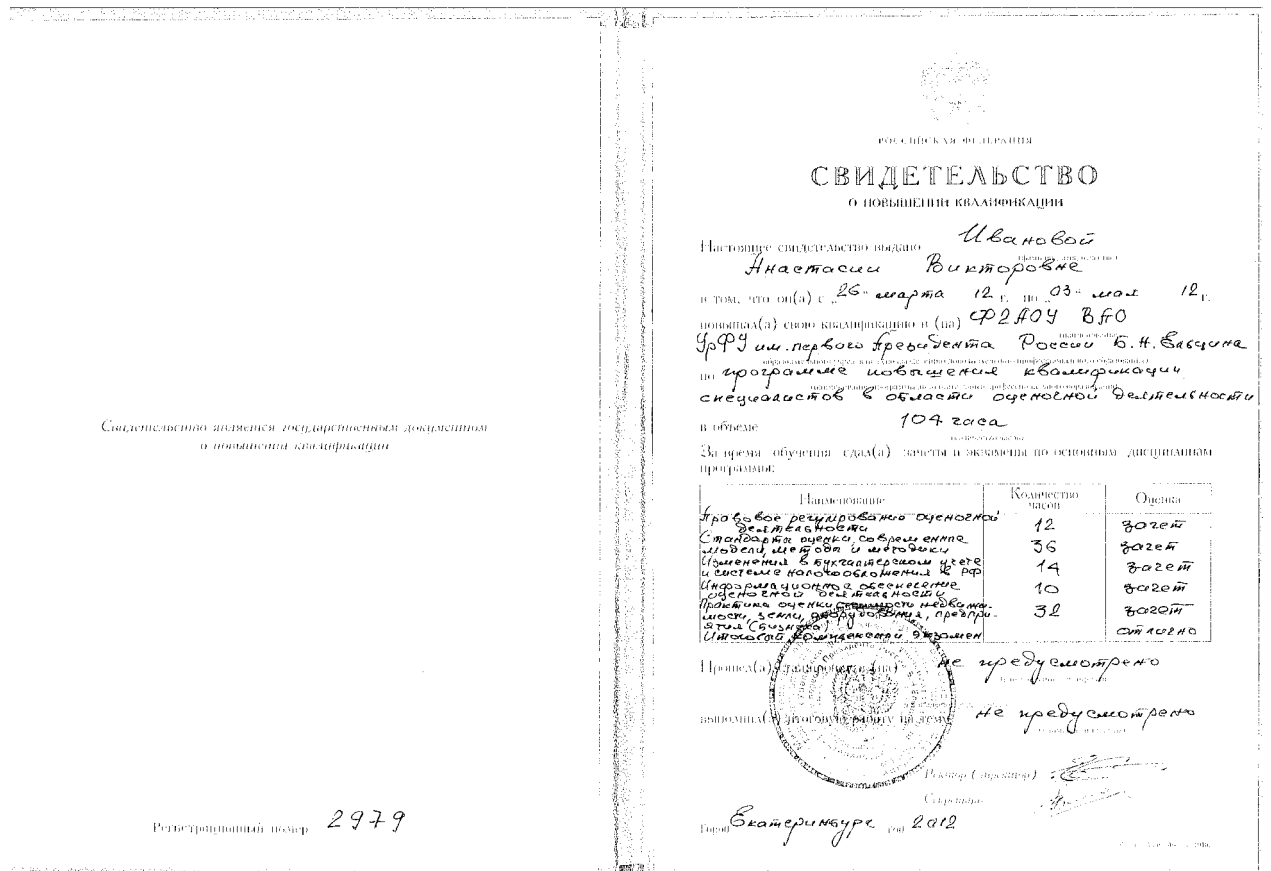 Свидетельство является государственным документом
о повышении квалификации
Регистрационный номер 2979
РОССИЙСКАЯ ФЕДЕРАЦИЯ
СВИДЕТЕЛЬСТВО
О ПОВЫШЕНИИ КВАЛИФИКАЦИИ
Настоящее свидетельство выдано Ивановой
Анастасии Викторовне
в том, что он(а) с „26“ марта 12 г. по „03“ мая 12 г.
повышал(а) свою квалификацию в (на) ФГАОУ ВПО
УрФУ им. первого Президента России Б.Н. Ельцина
по программе повышения квалификации
специалистов в области оценочной деятельности
в объеме 104 часа
За время обучения сдал(а) зачеты и экзамены по основным дисциплинам
программы:
Наименование Количество часов Оценка
Правовое регулирование оценочной
деятельности 12 зачет
Стандарты оценки, современные
модели, методы и методики 36 зачет
Изменения в бухгалтерском учете
и системе налогообложения в РФ 14 зачет
Информационное обеспечение
оценочной деятельности 10 зачет
Практика оценки стоимости недвижи-
мости, земли, оборудования, предпри-
ятия (бизнеса) 32 зачет
Итоговый комплексный экзамен отлично
Прошел(а) стажировку в (на) не предусмотрено
выполнил(а) итоговую работу на тему не предусмотрено
Ректор (директор)
Секретарь
Город Екатеринбург год 2012